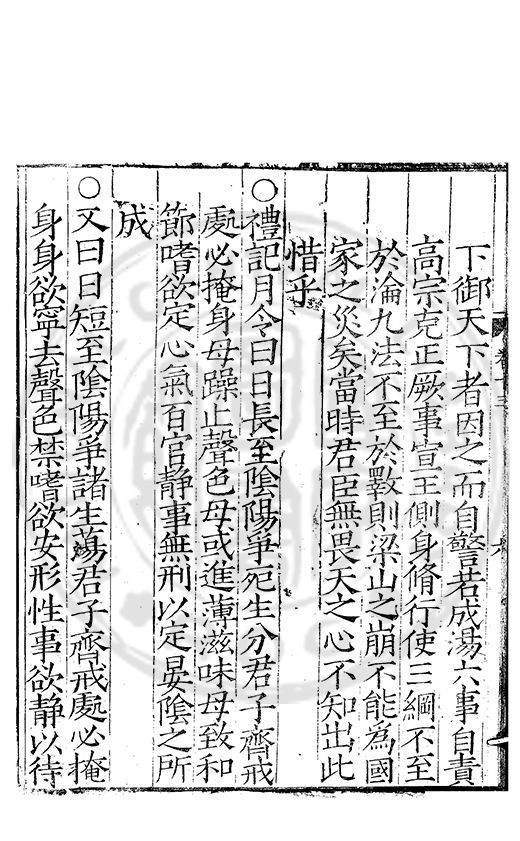 下御天下者因之而自警若成湯六事自責
高宗克正厥事宣王側身脩行使三綱不至
於淪九法不至於斁則梁山之崩不能為國
家之災矣當時君臣無畏天之心不知出此
惜乎
○禮記月令曰日長至陰陽爭死生分君子齊戒
處必掩身毋躁止聲色毋或進薄滋味毋致和
節嗜欲定心氣百官静事無刑以定晏陰之所
成
○又曰日短至陰陽爭諸生蕩君子齊戒處必掩
身身欲寧去聲色禁嗜欲安形性事欲静以待